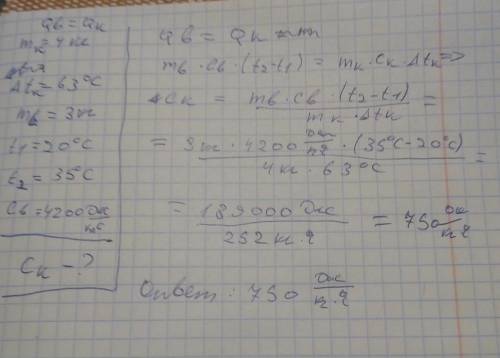 Qв = Qк
mк = 4 кг
Δtк = 63°C
mв = 3 кг
t1 = 20°C
t2 = 35°C
Cв = 4200 Дж/кг°C
Cк - ?
Qв = Qк
mв · Cв · (t2 - t1) = mк · Cк · Δtк =>
Cк = mв · Cв · (t2 - t1) / mк · Δtк =
= 3 кг · 4200 Дж/кг · (35°C - 20°C) / 4 кг · 63°C =
= 189000 Дж / 252 кг·°C = 750 Дж/кг·°C
Ответ: 750 Дж/кг·°C